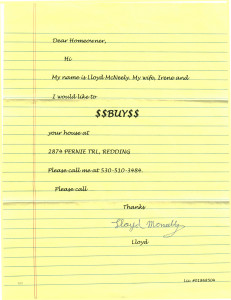 Dear Homeowner,
Hi
My name is Lloyd McNeely. My wife, Irene and
I would like to
$$BUY$$
your house at
2874 PERNIE TRL, REDDING
Please call me at 530-510-3484.
Please call
Thanks
Lloyd
Lloyd